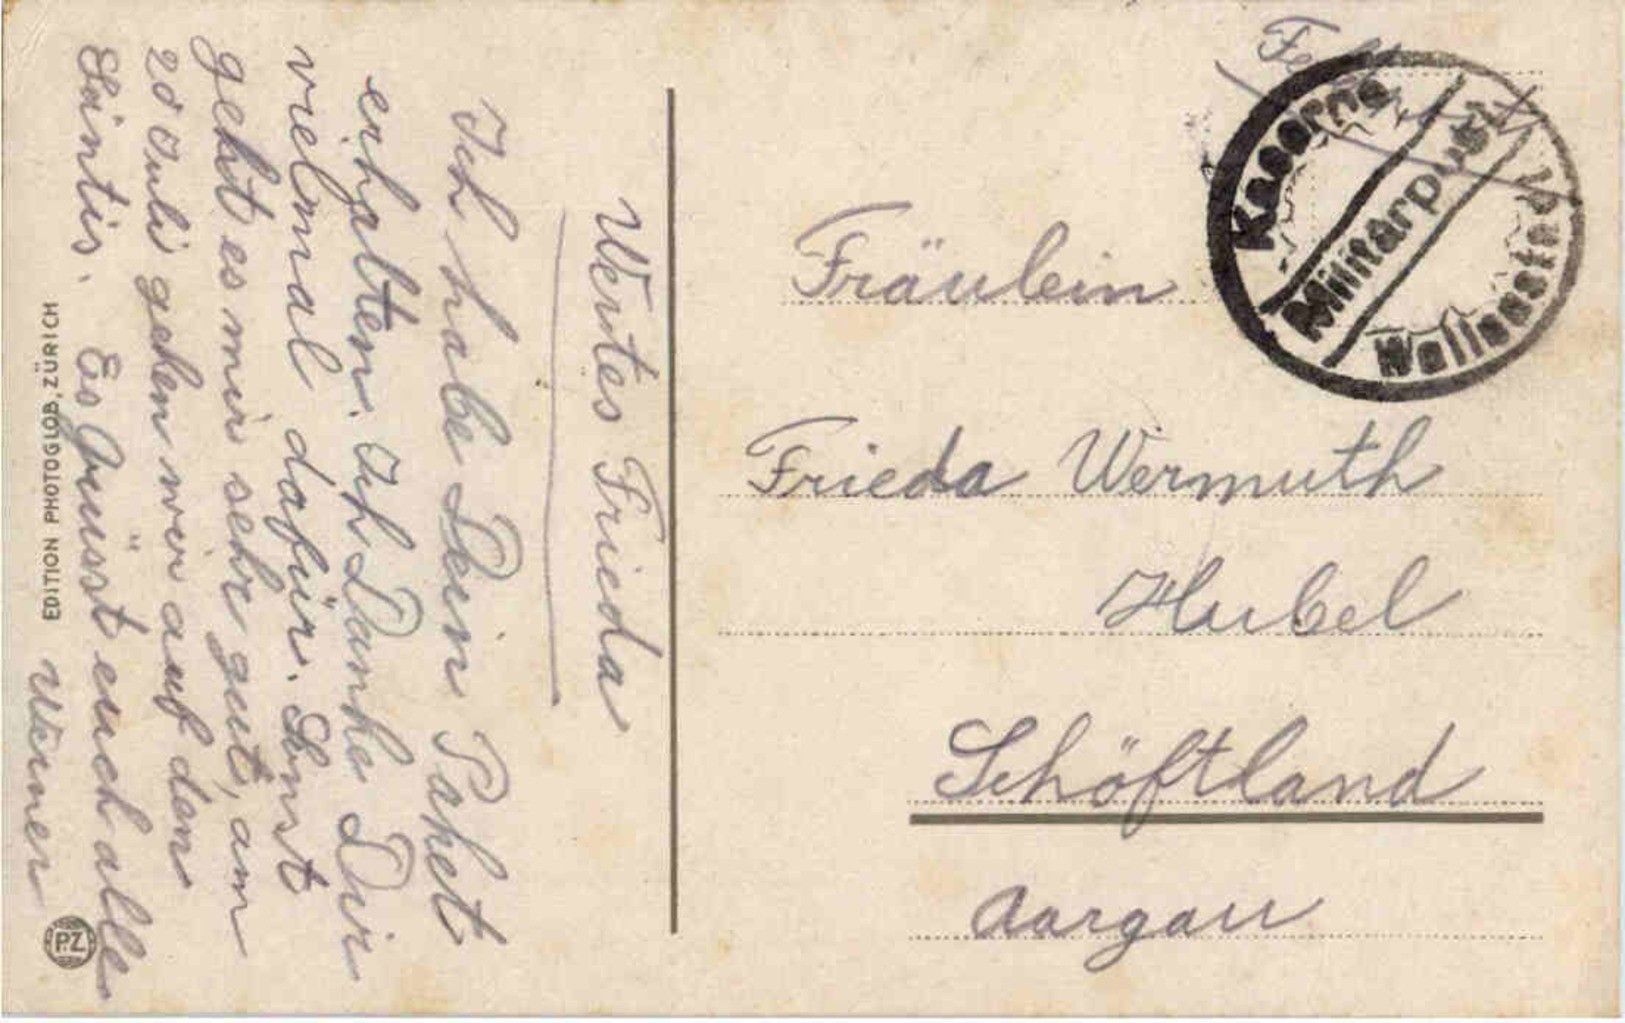 Wertes Frieda
Ich habe Dein Pahet
erhalten. Ich Danke Dir
vielmal dafür. Sonst
geht es mir sehr gut, am
20 Juli gehen wir auf den
Säntis. Es Grüsst euch alle
Werner
EDITION PHOTOGLOB, ZÜRICH
PZ
Kaserne
Militärpost
Wallenstadt
Fräulein
Frieda Wermuth
Hubel
Schöftland
Aargau